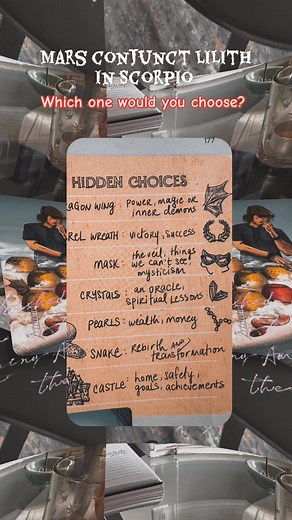 MARS CONJUNCT LILITH
IN SCORPIO
Which one would you choose?
177
HIDDEN CHOICES
AGON WING : POWER, MAGIC OR
inner demons
REL WREATH : VICTORY, SUCCESS
MASK : the veil, things
we can't see,
mysticism
CRYSTALS : an oracle,
spiritual lessons
PEARLS : wealth, money
SNAKE : Rebirth AND
transformation
CASTLE : home, safety,
goals, achievements